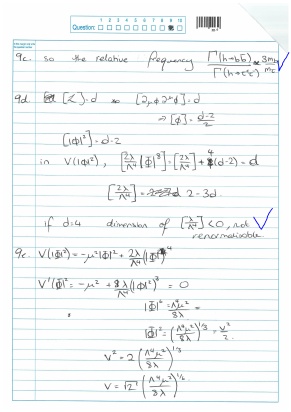 Question:
1 2 3 4 5 6 7 8 9 10
9c. so the relative frequency Γ(h→bb̄)/Γ(h→cc̄) ∝ 3m_b/m_c
9d [ℒ]=d so [∂μφ∂^μφ]=d
→ [φ]=(d-2)/2
[|Φ|²]=d-2
in V(|Φ|²), [2λ/Λ⁴ |Φ|⁸]=[2λ/Λ⁴]+4(d-2)=d
[2λ/Λ⁴]= 2-3d
if d=4 dimension of [λ/Λ⁴]<0, not
renormalisable
9e. V(|Φ|²)=-μ²|Φ|²+2λ/Λ⁴(|Φ|²)⁴
V'(|Φ|²)=-μ²+8λ/Λ⁴(|Φ|²)³=0
|Φ|²=Λ⁴μ²/8λ=
|Φ|²=(Λ⁴μ²/8λ)^1/3=v²/2.
v²=2(Λ⁴μ²/8λ)^1/3
v=√2(Λ⁴μ²/8λ)^1/2